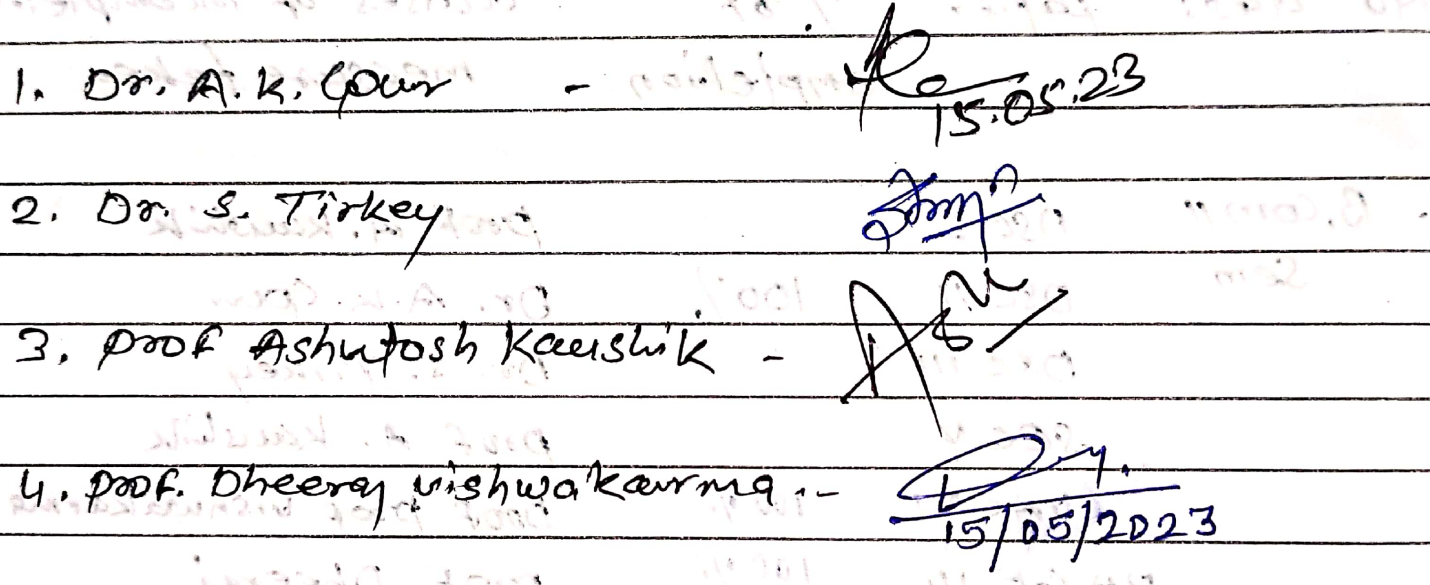 1. Dr. A. K. Gour -
15.05.23
2. Dr. S. Tirkey
3. Prof Ashutosh Kaushik -
4. Prof. Dheeraj Vishwakarma -
15/05/2023